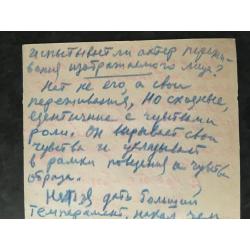 испытывает ли актер пережи-
вания изображаемого лица?
Нет не его, а свои
переживания, но сходные,
идентичные с чувствами
роли. Он выражает свои
чувства и укладывает
в рамки поведения и чувств
образа.
Нельзя дать больший
темперамент, накал чем